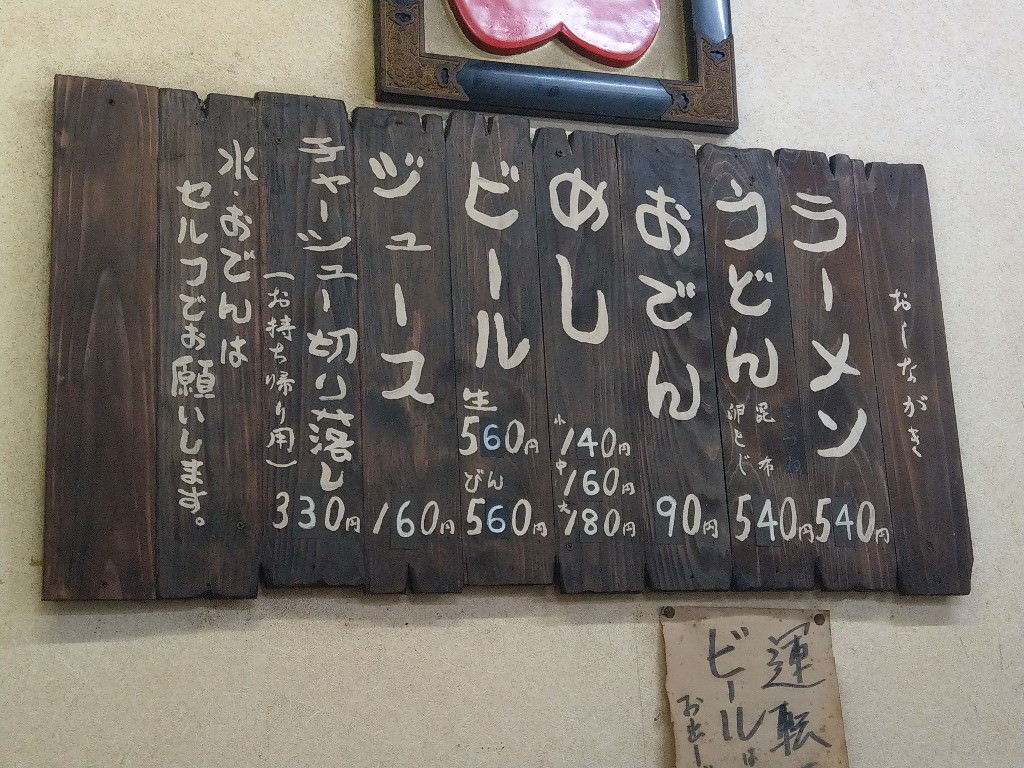 おしながき
ラーメン 540円
うどん 昆布 卵とじ 540円
おでん 90円
めし 小140円 中160円 大180円
ビール 生560円 びん560円
ジュース 160円
チャーシュー切り落し 330円
(お持ち帰り用)
水・おでんは
セルフでお願いします。
運転
ビールは